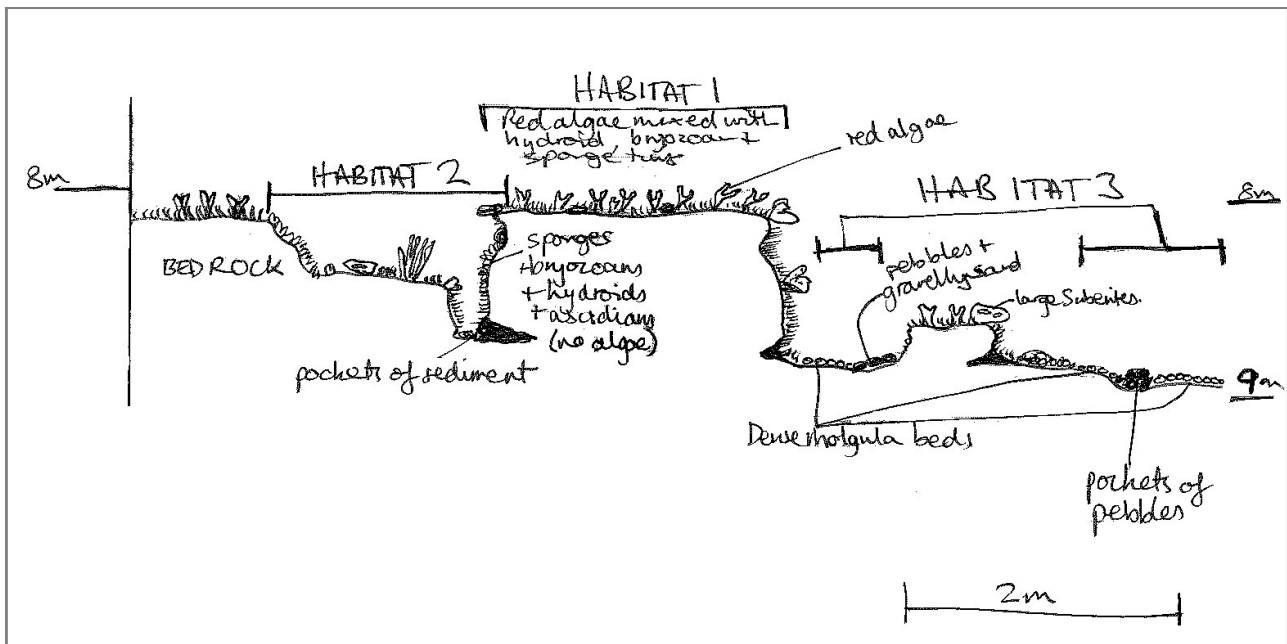 HABITAT 1
Red algae mixed with
hydroid, bryozoan +
sponge turf
red algae
8m
HABITAT 2
HABITAT 3
8m
BEDROCK
sponges
+bryozoans
+hydroids
+ascidians
(no algae)
pebbles +
gravelly sand
large Suberites.
pockets of sediment
9m
Dense molgula beds
pockets of
pebbles
2m